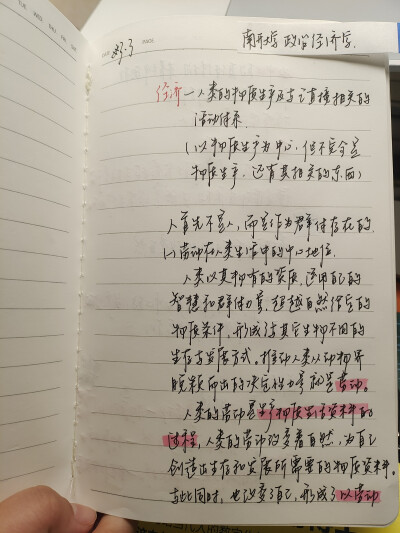 南开大学 政治经济学.
经济—人类的物质生产及与之直接相关的
活动体系.
(以物质生产为中心, 但不完全是
物质生产, 还有其相关的东西)
人首先不是人, 而是作为群体存在的.
(1) 劳动在人类生活中的中心地位.
人类以其拥有的资质, 运用自己的
智慧和群体力量, 超越自然给定的
物质条件, 形成了与其它生物不同的
生存与发展方式. 推动人类从动物界
脱颖而出的决定性力量就是劳动.
人类的劳动是生产物质生活资料的
过程, 人类的劳动改变着自然, 为自己
创造出生存和发展所需要的物质资料.
与此同时, 也改变了自己, 形成了以劳动